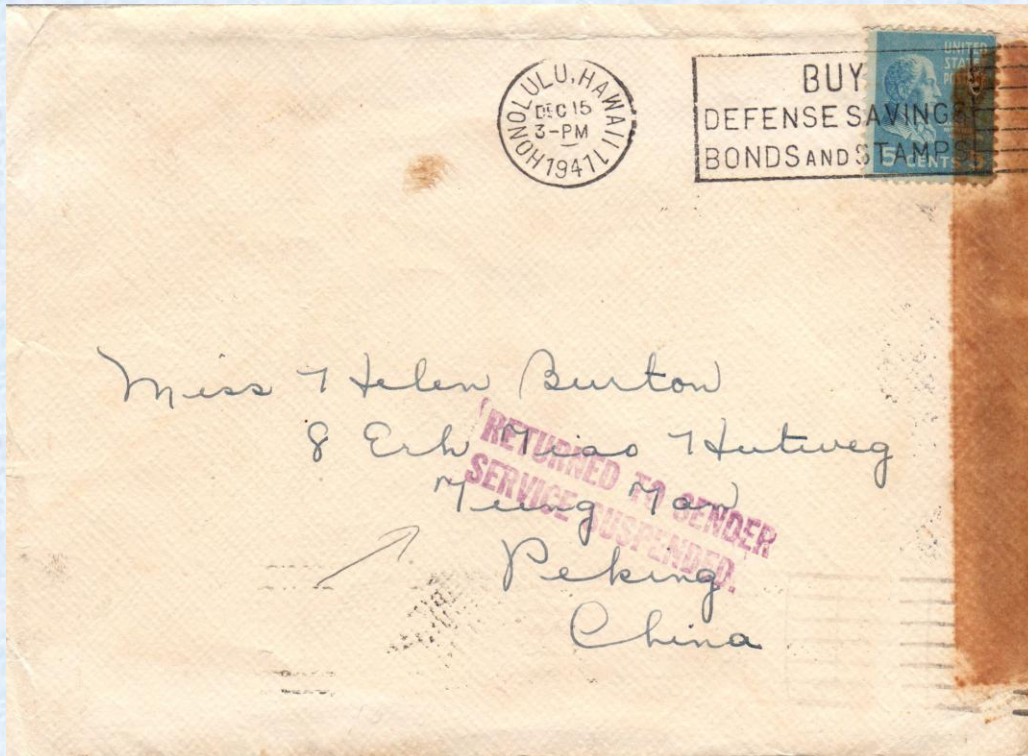 HONOLULU, HAWAII
DEC 15
3-PM
1941
BUY
DEFENSE SAVINGS
BONDS AND STAMPS
UNITED
STATES
5 CENTS
Miss Helen Burton
8 Erh Miao Hutung
Peking
China
RETURNED TO SENDER
SERVICE SUSPENDED.